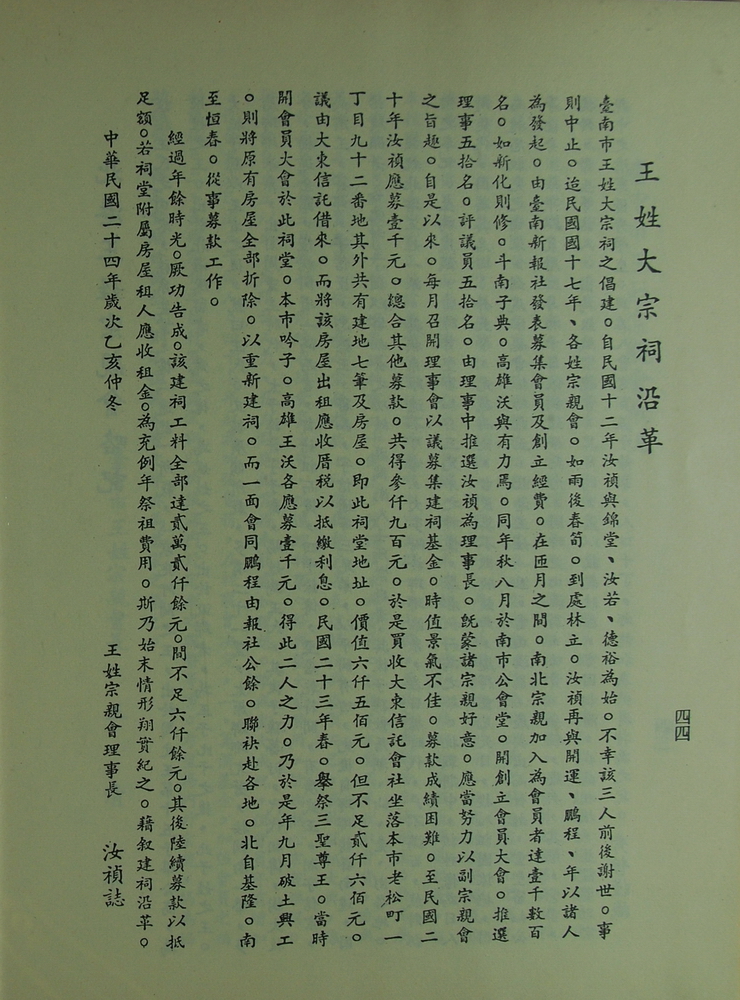 王姓大宗祠沿革
臺南市王姓大宗祠之倡建。自民國十二年汝禎與錦堂、汝若、德裕為始。不幸該三人前後謝世。事
則中止。迨民國國十七年、各姓宗親會。如雨後春筍。到處林立。汝禎再與開運、鵬程、年以諸人
為發起。由臺南新報社發表募集會員及創立經費。在匝月之間。南北宗親加入為會員者達壹千數百
名。如新化則修。斗南子典。高雄沃與有力焉。同年秋八月於南市公會堂。開創立會員大會。推選
理事五拾名。評議員五拾名。由理事中推選汝禎為理事長。既蒙諸宗親好意。應當努力以副宗親會
之旨趣。自是以來。每月召開理事會以議募集建祠基金。時值景氣不佳。募款成績困難。至民國二
十年汝禎應募壹千元。總合其他募款。共得參仟九百元。於是買收大東信託會社坐落本市老松町一
丁目九十二番地其外共有建地七筆及房屋。即此祠堂地址。價值六仟五佰元。但不足貳仟六佰元。
議由大東信託借來。而將該房屋出租應收厝稅以抵繳利息。民國二十三年春。舉祭三聖尊王。當時
開會員大會於此祠堂。本市吟子。高雄王沃各應募壹千元。得此二人之力。乃於是年九月破土興工
。則將原有房屋全部折除。以重新建祠。而一面會同鵬程由報社公餘。聯袂赴各地。北自基隆。南
至恒春。從事募款工作。
經過年餘時光。厥功告成。該建祠工料全部達貳萬貳仟餘元。間不足六仟餘元。其後陸續募款以抵
足額。若祠堂附屬房屋租人應收租金。為充例年祭祖費用。斯乃始末情形翔實紀之。藉叙建祠沿革。
中華民國二十四年歲次乙亥仲冬
王姓宗親會理事長 汝禎誌
四四